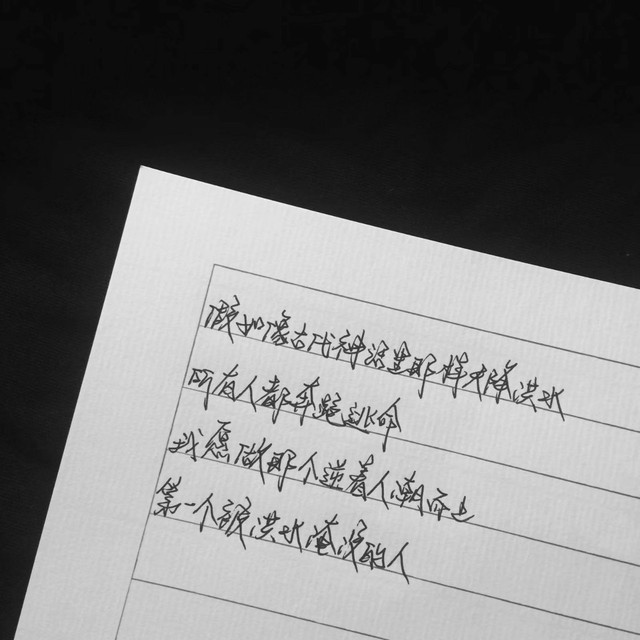 假如像古代神话里那样天降洪水
所有人都奔跑逃命
我愿做那个逆着人潮而上
第一个被洪水淹没的人